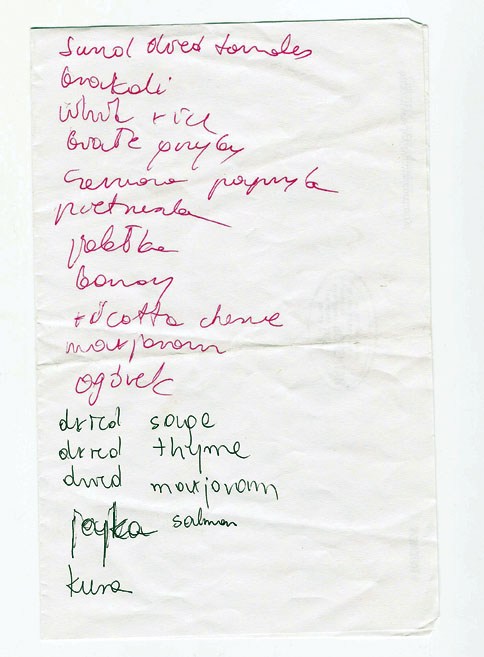 Sund dried tomatoes
brokoli
white rice
białe grzyby
czerwona papryka
pietruszka
jabłka
banany
ricotta cheese
marjoram
ogórek
dried sage
dried thyme
dried marjoram
jajka salmon
kura